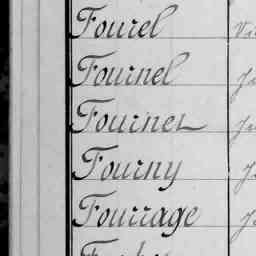 Fourel
Fournel
Fournel
Fourny
Fourrage